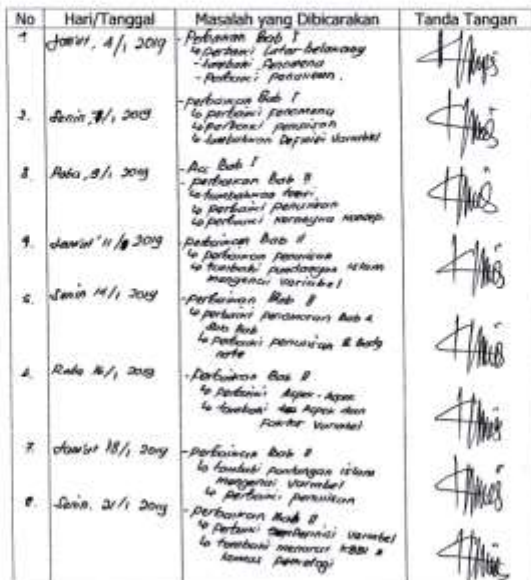 No Hari/Tanggal Masalah yang Dibicarakan Tanda Tangan
1. Jum'at, 4/1 2019 - Perbaikan Bab I
↳ perbaiki Latar belakang
- tambahi Fenomena
- Perbaiki penulisan.
2. Senin, 7/1 2019 - perbaikan Bab I
↳ perbaiki fenomena
↳ perbaiki penulisan
↳ tambahkan Definisi Variabel
3. Rabu, 9/1 2019 - Acc Bab I
- perbaikan Bab II
↳ tambahkan teori
↳ perbaiki penulisan
↳ perbaiki kerangka konsep.
4. Jum'at 11/1 2019 - perbaikan Bab II
↳ perbaikan penulisan
↳ tambahi pandangan islam
mengenai variabel
5. Senin 14/1 2019 - perbaikan Bab II
↳ perbaiki penomoran Bab &
Sub Bab
↳ perbaiki penulisan & Body
note
6. Rabu 16/1 2019 - Perbaikan Bab II
↳ perbaiki Aspek-Aspek
↳ tambahi Aspek dan
Faktor Variabel
7. Jum'at 18/1 2019 - perbaikan Bab II
↳ tambahi pandangan islam
mengenai variabel
↳ perbaiki penulisan
8. Senin, 21/1 2019 - perbaikan Bab II
↳ perbaiki definisi variabel
↳ tambahi menurut KBBI &
kamus psikologi